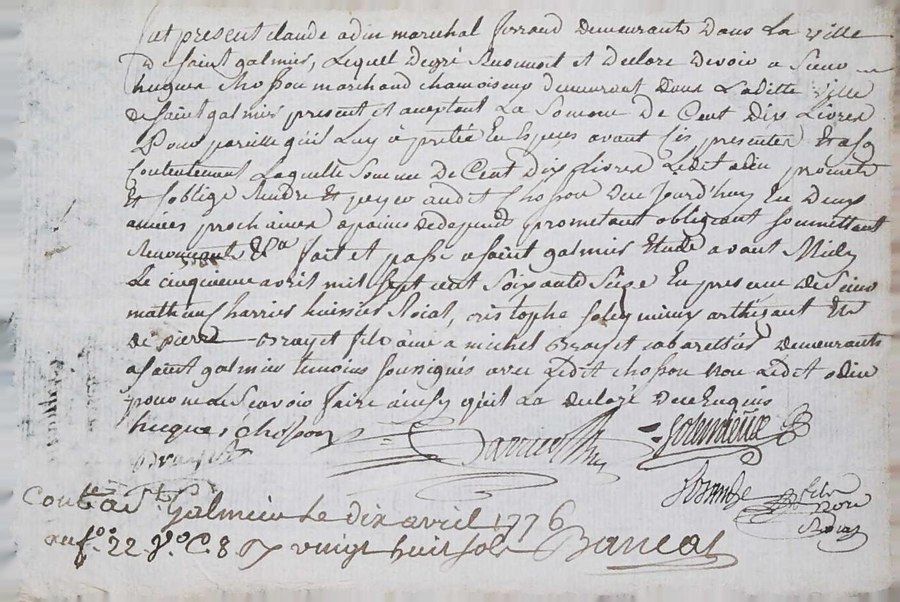 fut present claude odin marechal ferrand demeurants dans La ville
De Saint galmier, Lequel de gré Reconnoit et declare devoir a Sieur
hugues Chosson marchand chamoiseur demeurant dans Laditte ville
de Saint galmier present et aceptant La Somme De Cent dix Livres
Pour pareille qu'il Luy à pretée En Especes avant Ces presentes Et a son
Contentement Laquelle Somme de Cent dix Livres Ledit odin promets
Et soblige Rendre Et payer audit Chosson Dau Jourdhuy En deux
années prochaines a paines de depend prometant obligeant Soumettant
Renonceant &a fait et passé a Saint galmier Etude avant Midy
Le cinquieme avril mil Sept cent Soixante Seize En presence de Sieur
mathieu harrier huissier Roial, cristophe Soleymieux arthisant Et
de pierre Brayet fils ainé a michel Brayet cabarettier demeurants
a Saint galmier temoins Soussignés avec Ledit Chosson Non Ledit odin
pour ne Le Scavoir faire ainsy qu'il La declaré De ce Enquis
hugues Chosson Barrier Solemieux
Brayet
Conté a St Galmier Le dix avril 1776
au f.° 22 v.° C. 8 vingt huit sols Bancal